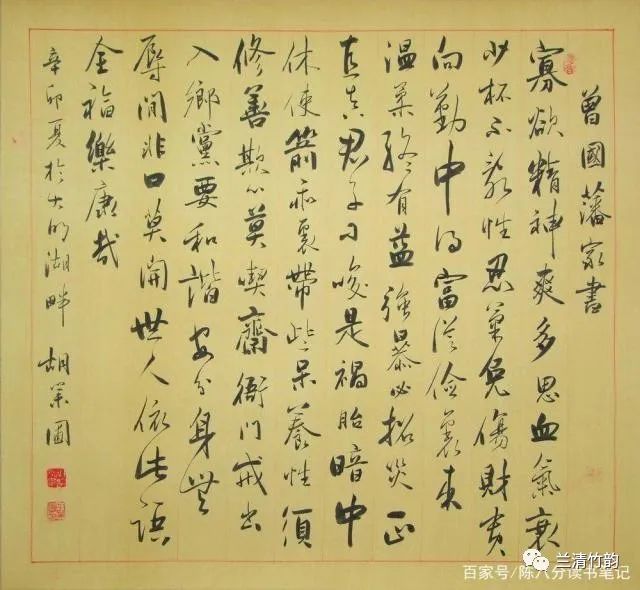 曾國藩家書
寡欲精神爽多思血氣衰
少杯不亂性忍氣免傷財貴
向勤中得富從儉裏來
温柔終有益強暴必招災正
直真君子刁唆是禍胎暗中
休使箭乖裏帶些呆養性須
修善欺心莫喫齋衙門戒出
入鄉黨要和諧安分身無
辱閒非口莫開世人依此語
全福樂康哉
辛卯夏於大明湖畔 胡
兰清竹韵
百家号/陈八分读书笔记